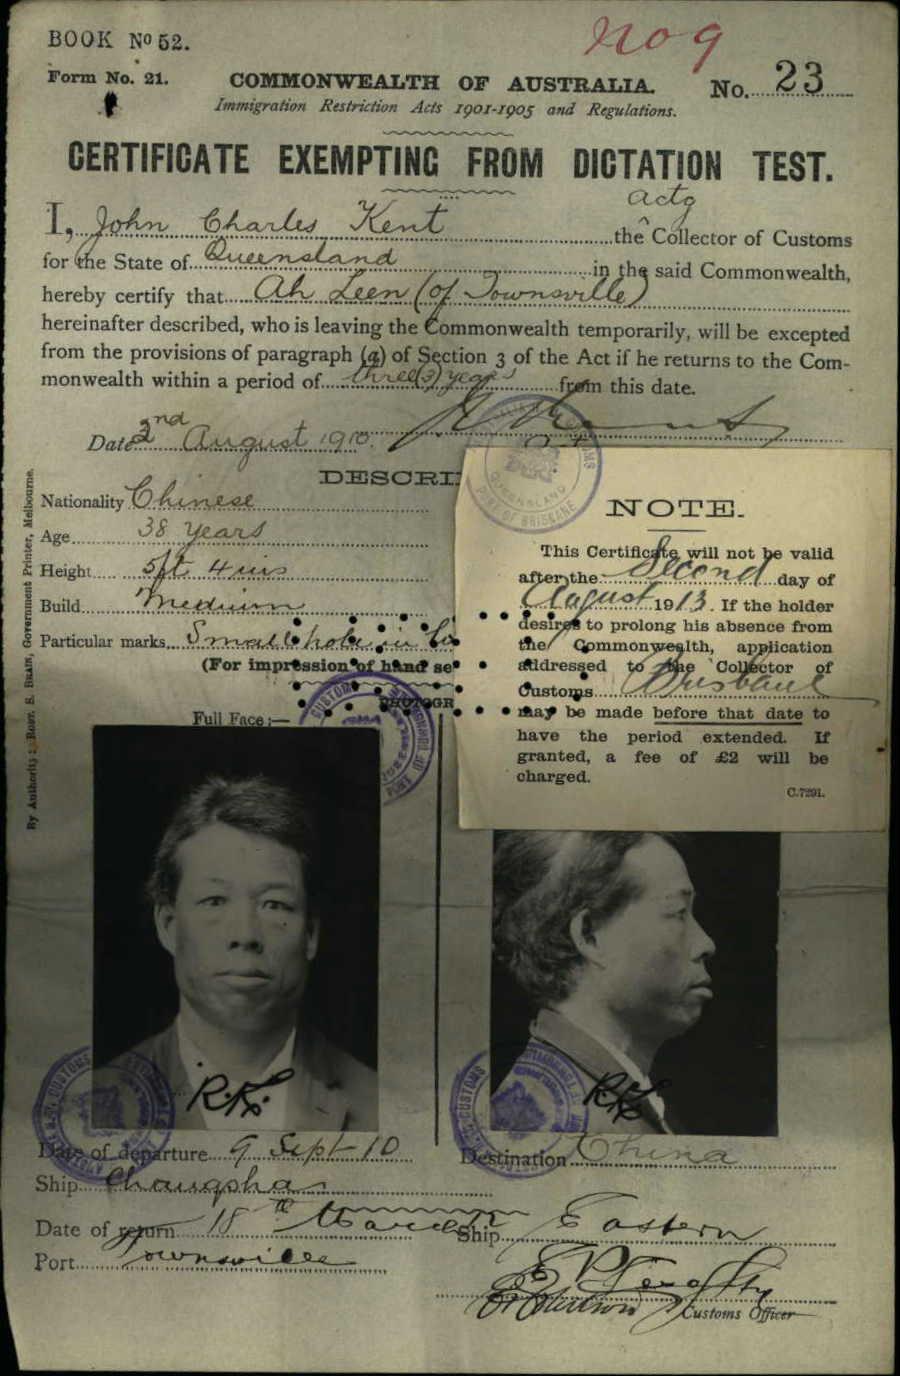 BOOK No 52.
no 9
Form No. 21.
COMMONWEALTH OF AUSTRALIA.
No. 23
Immigration Restriction Acts 1901-1905 and Regulations.
CERTIFICATE EXEMPTING FROM DICTATION TEST.
actg
I, John Charles Kent the Collector of Customs
for the State of Queensland in the said Commonwealth,
hereby certify that Ah Leen (of Townsville)
hereinafter described, who is leaving the Commonwealth temporarily, will be excepted
from the provisions of paragraph (a) of Section 3 of the Act if he returns to the Com-
monwealth within a period of three (3) years from this date.
Date 2nd August 1910.
DESCRI
Nationality Chinese
Age 38 years
Height 5ft 4 ins
Build Medium
Particular marks Small hole in
(For impression of hand se
PHOTOGR
Full Face:—
NOTE.
This Certificate will not be valid
after the Second day of
August 1913. If the holder
desires to prolong his absence from
the Commonwealth, application
addressed to the Collector of
Customs Brisbane
may be made before that date to
have the period extended. If
granted, a fee of £2 will be
charged.
C.7291.
By Authority: ROBT. S. BRAIN, Government Printer, Melbourne.
CUSTOMS
QUEENSLAND
PORT OF BRISBANE
Date of departure 9 Sept 10
Destination China
Ship Changsha
Date of return 18th March
Ship Eastern
Port Townsville
Customs Officer